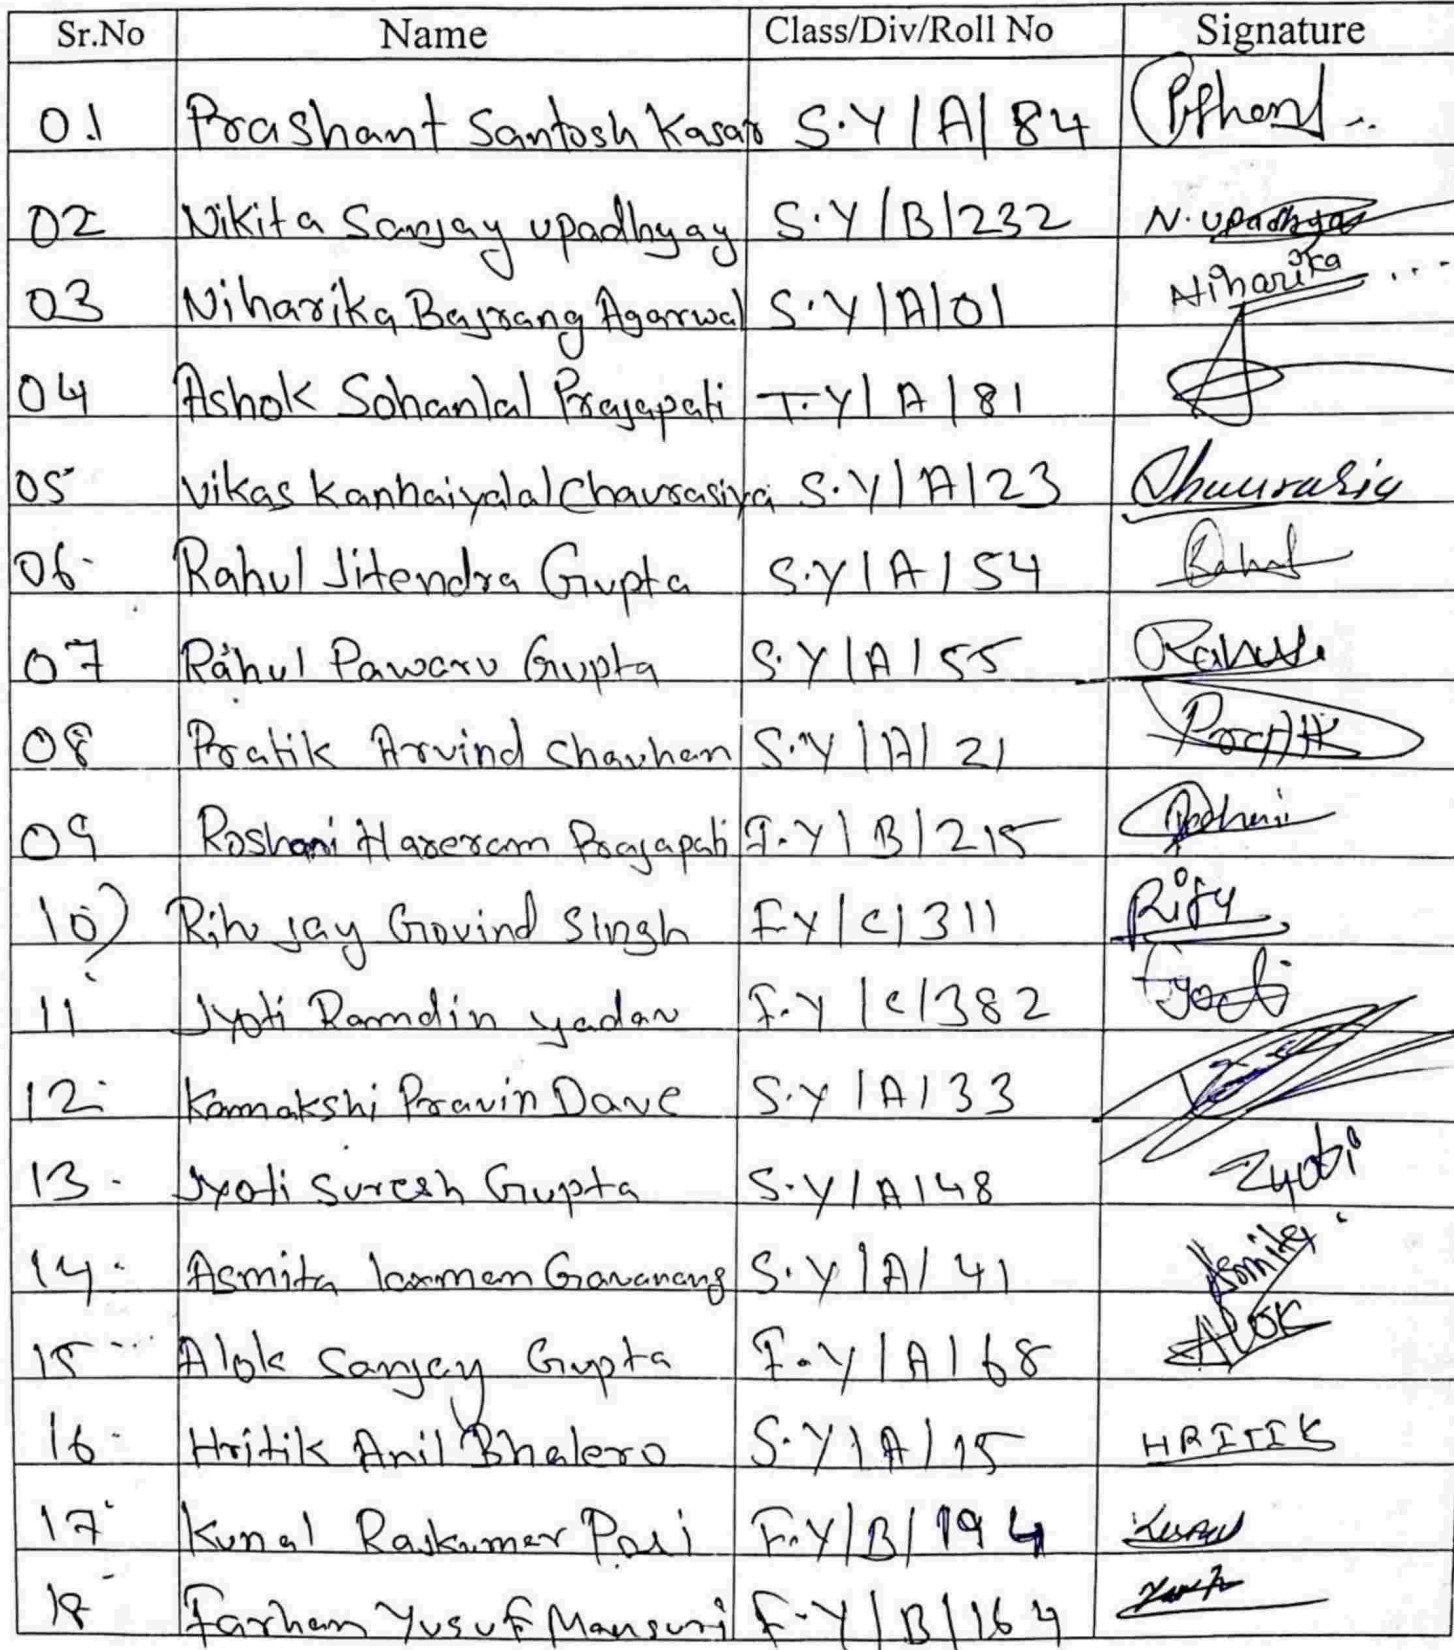 Sr.No Name Class/Div/Roll No Signature
01 Prashant Santosh Kasar S.Y/A/84
02 Nikita Sanjay Upadhyay S.Y/B/232 N.Upadhyay
03 Niharika Bajrang Agarwal S.Y/A/01 Niharika...
04 Ashok Sohanlal Prajapati T.Y/A/81
05 Vikas Kanhaiyalal Chaurasiya S.Y/A/23 Chaurasia
06 Rahul Jitendra Gupta S.Y/A/54 Rahul
07 Rahul Pawaru Gupta S.Y/A/55 Rahul
08 Pratik Arvind Chauhan S.Y/A/21 Pratik
09 Roshani Hareram Prajapati F.Y/B/215
10) Jay Govind Singh F.Y/C/311
11 Jyoti Ramdin yadav F.Y/C/382 Jyoti
12 Kamakshi Pravin Dave S.Y/A/33
13 Jyoti Suresh Gupta S.Y/A/48
14 Asmita laxman Gavanang S.Y/A/41 Asmita
15 Alok Sanjay Gupta F.Y/A/68 ALOK
16 Hritik Anil Bhalero S.Y/A/15 HRITIK
17 Kunal Rajkumar Pasi F.Y/B/194 Kunal
18 Farhan Yusuf Mansuri F.Y/B/164